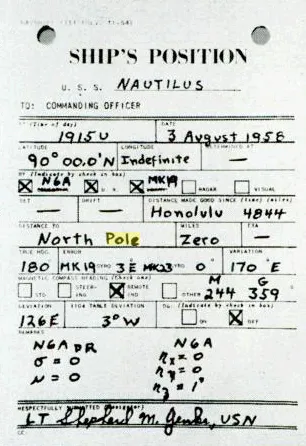 SHIP'S POSITION
U. S. S. NAUTILUS
TO: COMMANDING OFFICER
AT (Time of day) DATE
1915U 3 August 1958
LATITUDE LONGITUDE DETERMINED AT
90°00.0'N Indefinite —
BY (Indicate by check in box)
N6A D. R. MK19 RADAR VISUAL
SET DRIFT DISTANCE MADE GOOD SINCE (Time) (Miles)
— — Honolulu 4844
DISTANCE TO MILES ETA
North Pole Zero —
TRUE HDG. ERROR VARIATION
180 MK19 GYRO 3E MK23 GYRO 0° 170°E
MAGNETIC COMPASS HEADING (Check one)
STD STEERING REMOTE IND OTHER M 244 G 359°
DEVIATION 1104 TABLE DEVIATION DG: (Indicate by check in box)
126E 3°W ON OFF
REMARKS
N6A DR N6A
σ = 0 nx = 0
μ = 0 ny = 0
nz = 1°
RESPECTFULLY SUBMITTED (Navigator)
LT Shepherd M. Jenks, USN
CC: